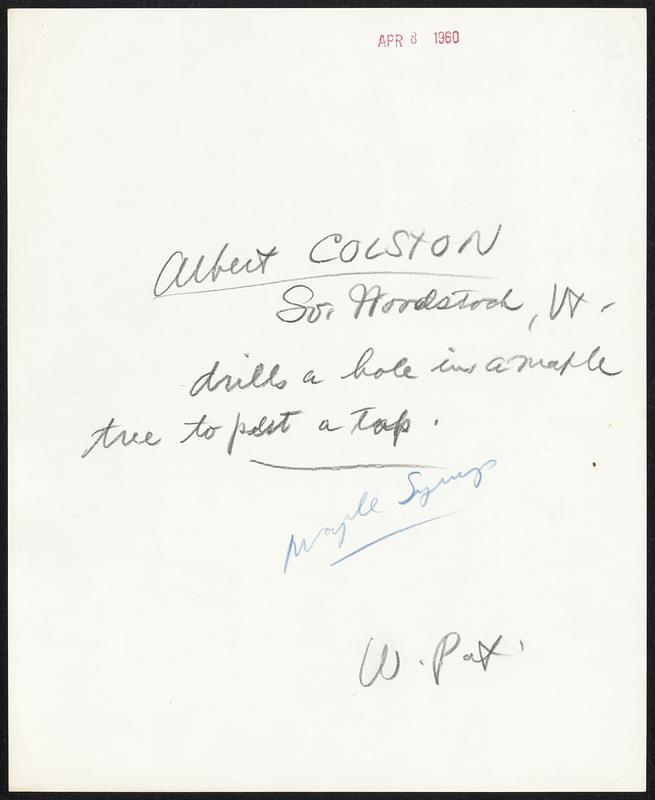 APR 8 1960
Albert COLSTON
So. Woodstock, Vt.
drills a hole in a maple
tree to put a tap.
Maple Syrup
W. Pat.